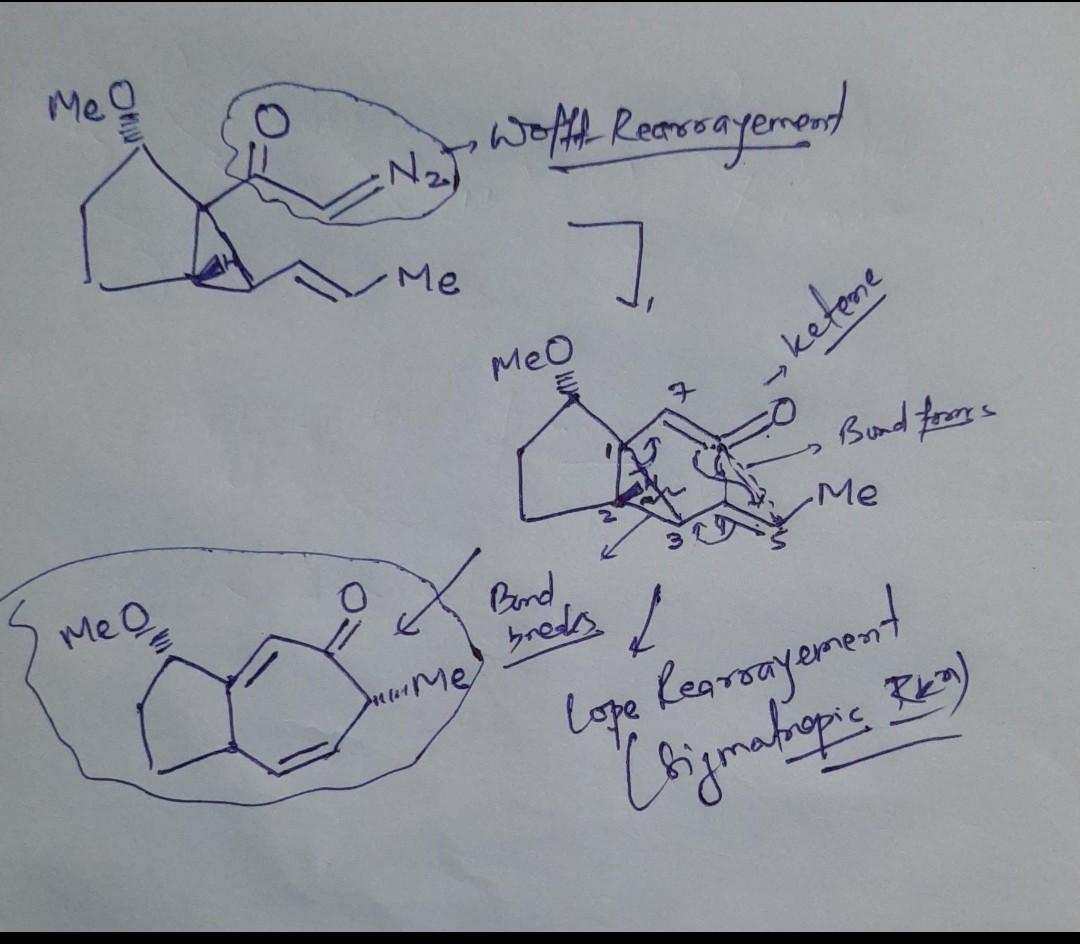 MeO
O
N2
Wolff Rearrayement
H
Me
ketene
MeO
7
O
Bond forms
1
Me
2
3
4
5
Bond
breaks
O
MeO
Me
Cope Rearrayement
(Sigmatropic Rxn)